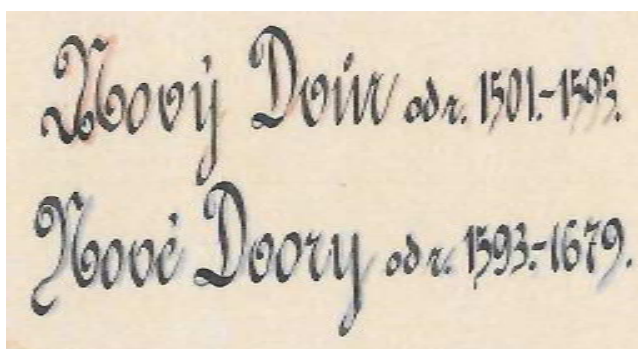 Nový Dvůr od r. 1501.-1593.
Nové Dvory od r. 1593.-1679.